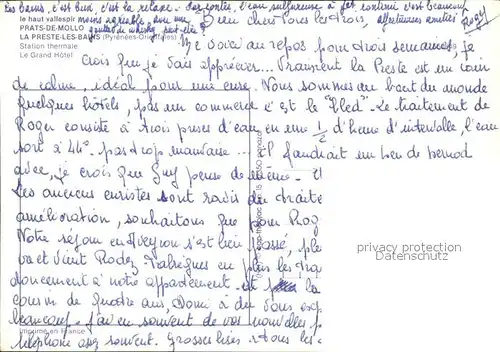 Les bains, c'est bien, c'est la relaxe. Par contre, l'eau sulfureuse à jet continu c'est beaucoup
moins agréable. Avec une
goutte de whisky peut-être ?
affectueuses amitiés
Roger
le haut vallespir
PRATS-DE-MOLLO
LA PRESTE-LES-BAINS (Pyrénées-Orientales)
Station thermale
Le Grand Hôtel
Bien chers tous les trois,
Me voici au repos pour trois semaines, je
crois que je sais apprécier... Vraiment La Preste est un coin
de calme, idéal pour une cure. Nous sommes au bout du monde
quelques hôtels, pas un commerce c'est le "bled". Le traitement de
Roger consiste à trois prises d'eau en une 1/2 d'heure d'intervalle, l'eau
sort à 44°. pas trop mauvaise... Il faudrait un peu de pernod
avec, je crois que Guy pense de même.
Les anciens curistes sont ravis du traite
amélioration, souhaitons que pour Rog
Notre séjour en Aveyron s'est bien passé,
va et vient Rodez
doucement à notre appartement. la
course de quatre ans,
beaucoup. J'ai eu souvent de vos nouvelles p
téléphone assez souvent. Grosses bises à tous les
Imprimé en France
privates Copyright
Datenschutz